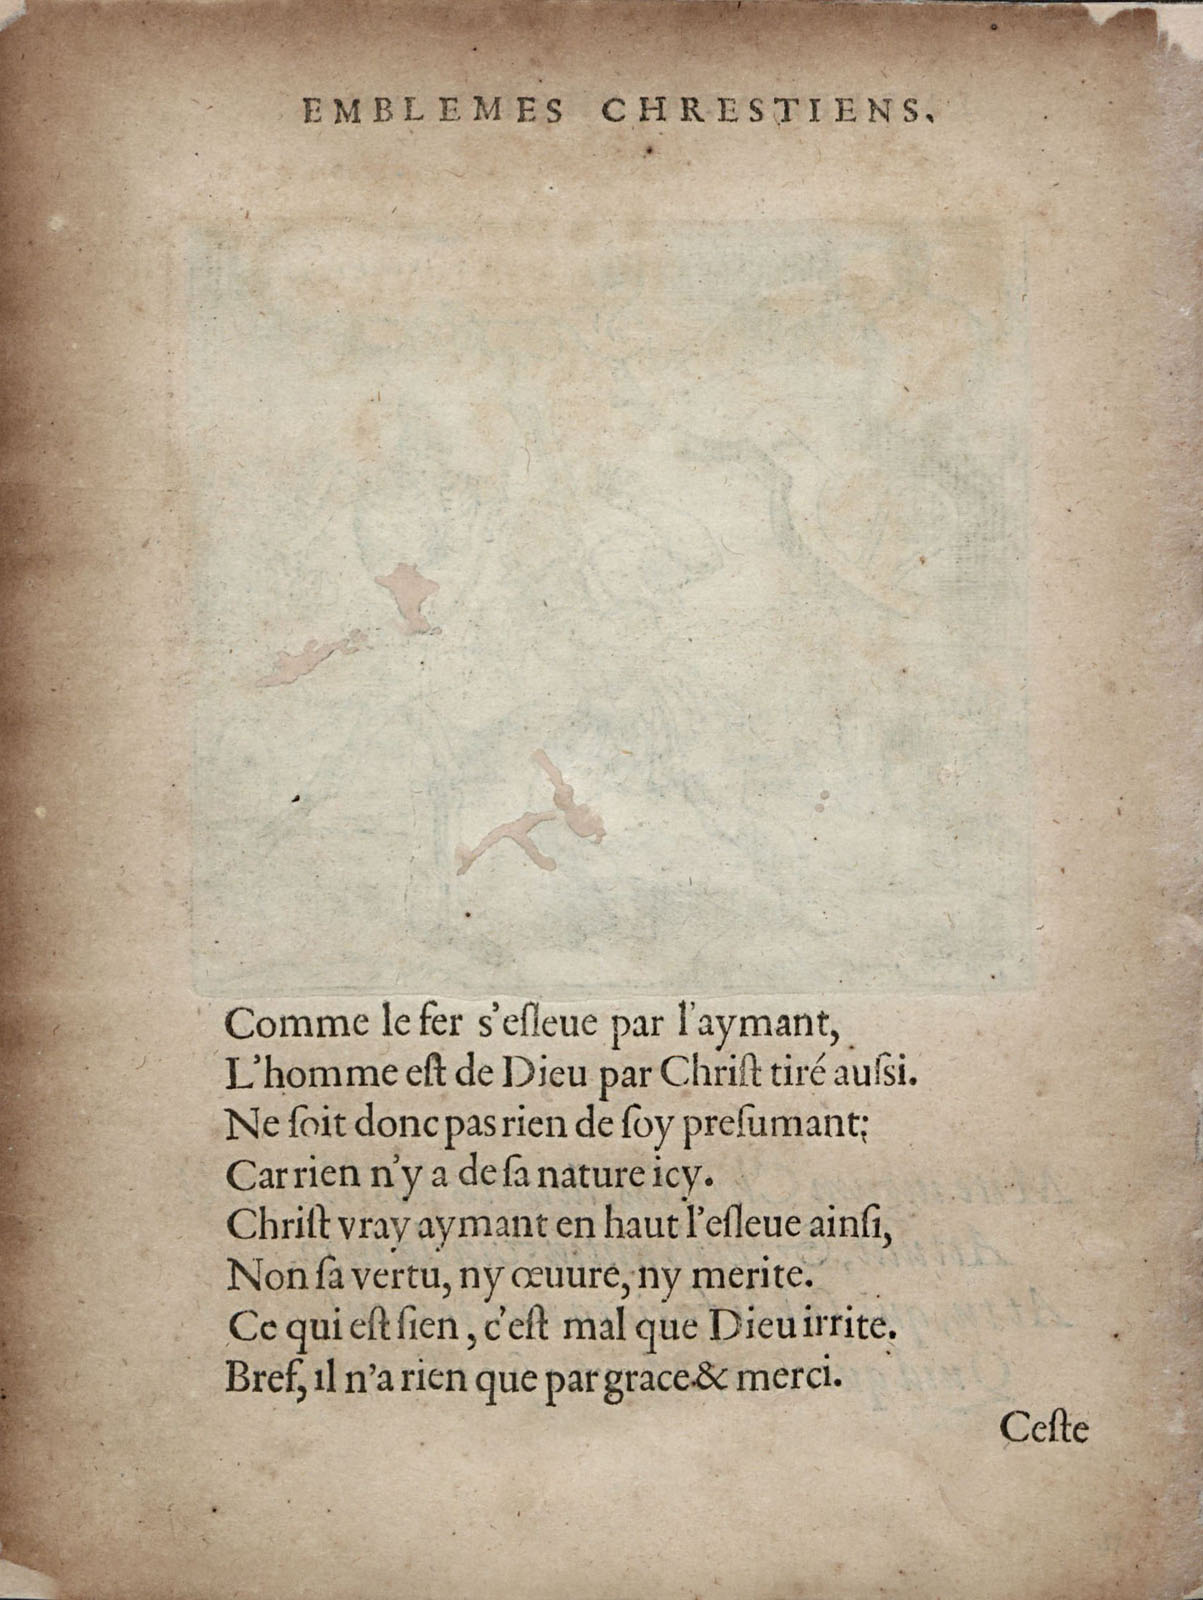 EMBLEMES CHRESTIENS.
Comme le fer s'eſleue par l'aymant,
L'homme eſt de Dieu par Chriſt tiré auſsi.
Ne ſoit donc pas rien de ſoy preſumant;
Car rien n'y a de ſa nature icy.
Chriſt vray aymant en haut l'eſleue ainſi,
Non ſa vertu, ny œuure, ny merite.
Ce qui eſt ſien, c'eſt mal que Dieu irrite.
Bref, il n'a rien que par grace & merci.
Ceſte